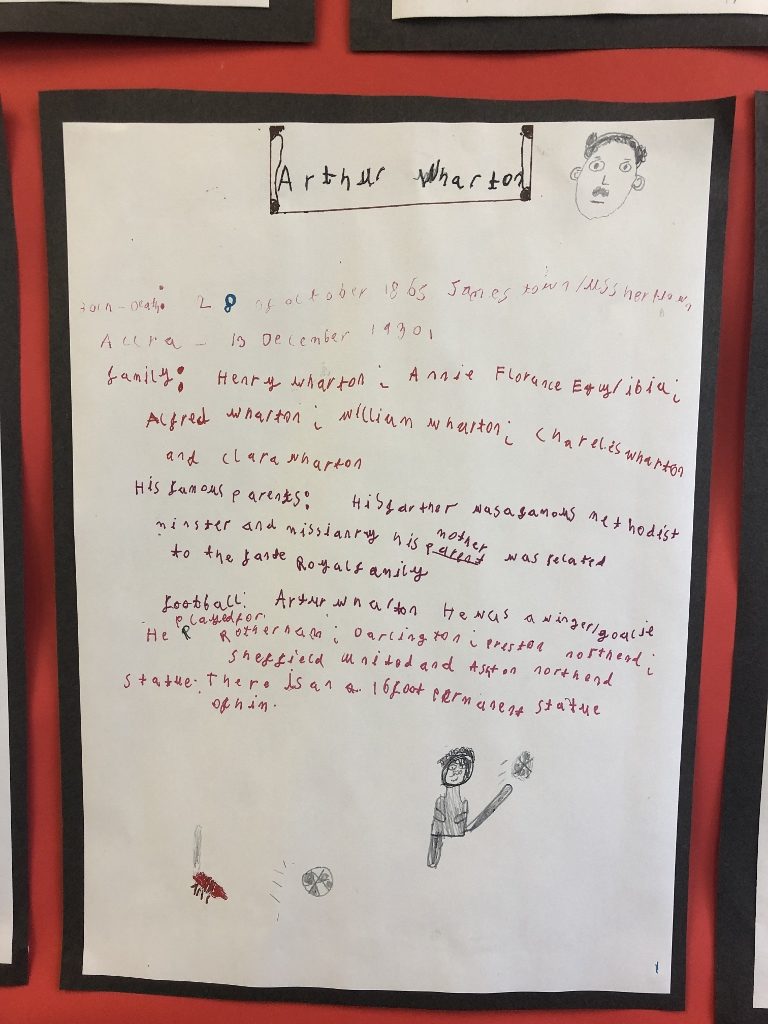 Arthur Wharton
Born-Death: 28 of october 1865 James town/Ussher town
Accra - 13 December 1930,
family: Henry Wharton; Annie Florance Egyribia;
Alfred wharton; william wharton; Charelis wharton
and clara wharton
His famous parents: His farther was a famous methodist
minster and missianry his mother parent was related
to the fante Royal family
football: Artur wharton He was a winger/goalie
He played for Rotherham; Darlington; preston northend;
sheffield united and Ashton northend
Statue: There is an a 16 foot permanent statue
of him.